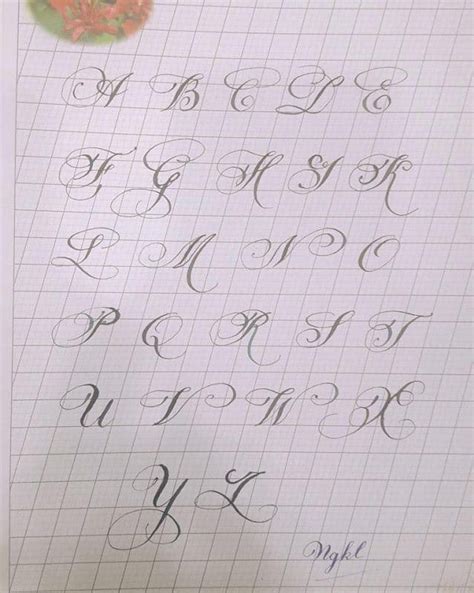 A B C D E
F G H I K
L M N O
P Q R S T
U V W X
Y Z
Ngkl